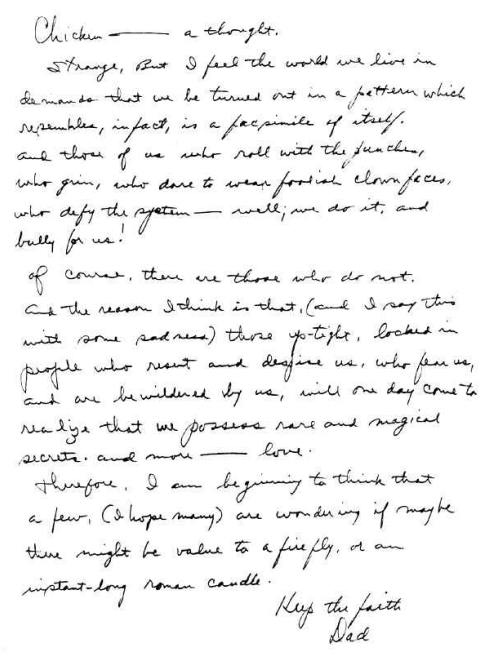 Chicken —— a thought.
Strange, But I feel the world we live in
demands that we be turned out in a pattern which
resembles, in fact, is a facsimile of itself.
and those of us who roll with the punches,
who grin, who dare to wear foolish clown faces,
who defy the system — well; we do it, and
bully for us!
Of course, there are those who do not.
And the reason I think is that, (and I say this
with some sadness) those up-tight, locked in
people who resent and despise us, who fear us,
and are bewildered by us, will one day come to
realize that we possess rare and magical
secrets. and more —— love.
Therefore, I am beginning to think that
a few, (I hope many) are wondering if maybe
there might be value to a firefly, or an
instant-long roman candle.
Keep the faith
Dad